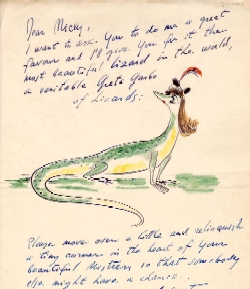 Dear Micky,
I want to ask You to do me a great
favour and I'll give You for it the
most beautiful lizard in the world,
a veritable Greta Garbo
of lizards:
Please move over a little and relinquish
a tiny corner in the heart of Your
beautiful Mistress so that somebody
else might have a chance.